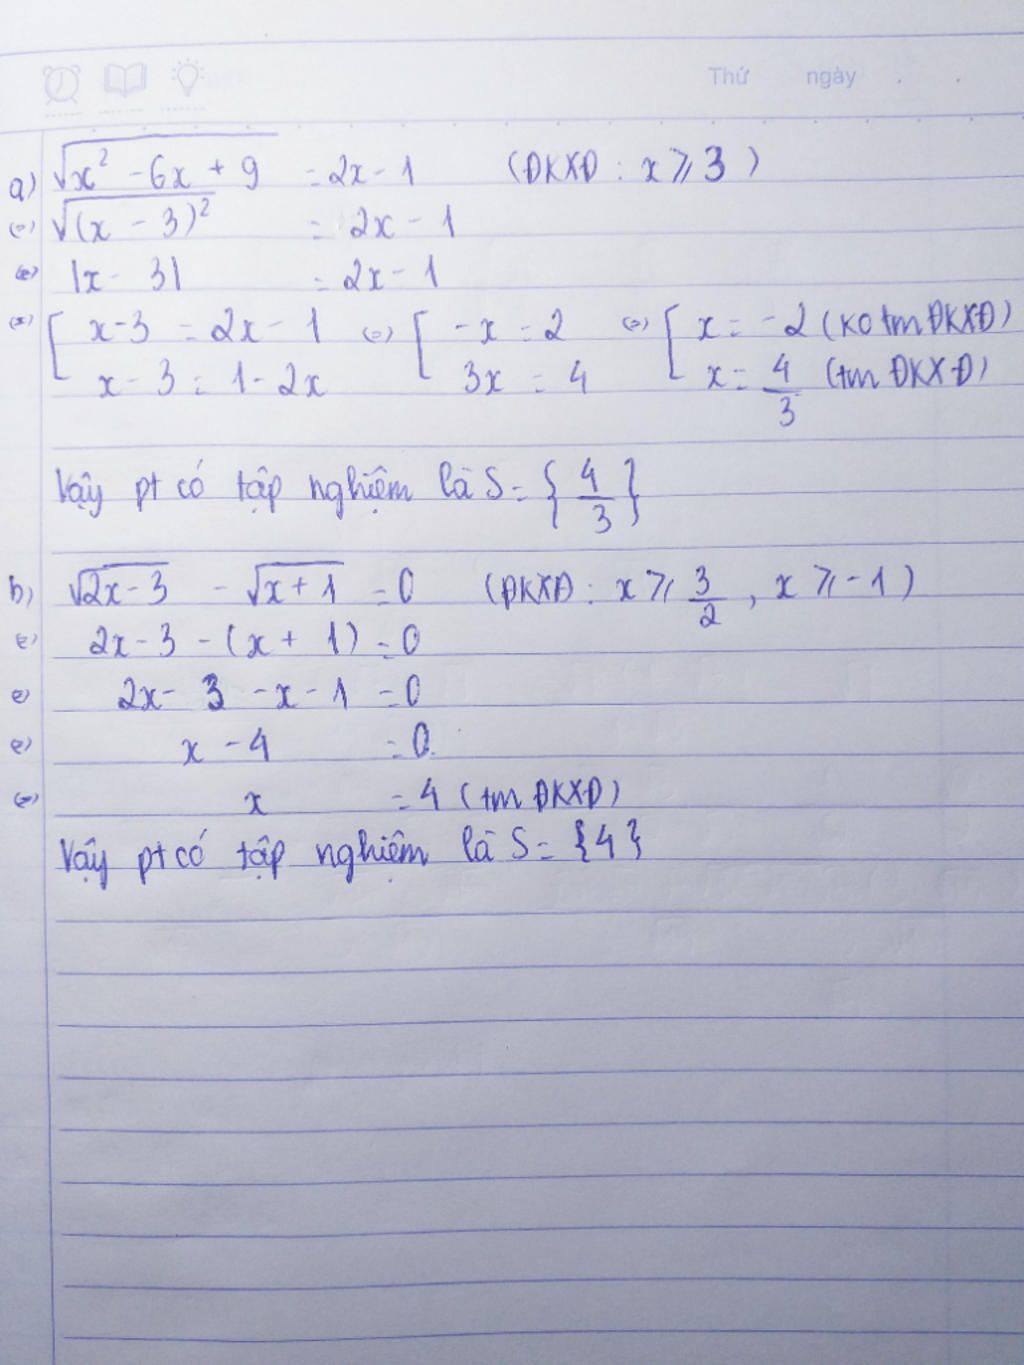 Thứ ngày . .
a) √(x² - 6x + 9) = 2x - 1 (ĐKXĐ : x ⩾ 3)
(=) √((x - 3)²) = 2x - 1
(=) |x - 3| = 2x - 1
(=) [ x - 3 = 2x - 1 (=) [ -x = 2 (=) [ x = -2 (ko tm ĐKXĐ)
x - 3 = 1 - 2x 3x = 4 x = 4/3 (tm ĐKXĐ)
Vậy pt có tập nghiệm là S = {4/3}
b) √(2x - 3) - √(x + 1) = 0 (ĐKXĐ : x ⩾ 3/2 , x ⩾ -1)
(=) 2x - 3 - (x + 1) = 0
(=) 2x - 3 - x - 1 = 0
(=) x - 4 = 0
(=) x = 4 (tm ĐKXĐ)
Vậy pt có tập nghiệm là S = {4}